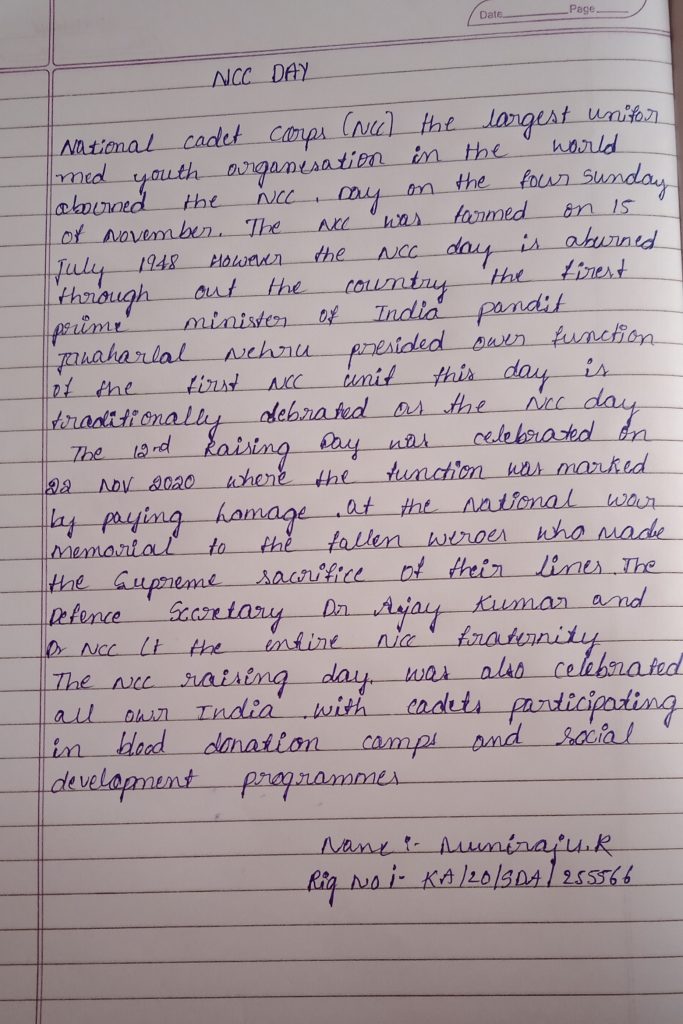 Date
Page
NCC DAY
National cadet Corps (NCC) the largest unifor
med youth organesation in the world
obourned the NCC . Day on the four Sunday
of November. The NCC was formed on 15
July 1948 However the NCC day is aburned
through out the country the first
prime minister of India pandit
Jawaharlal Nehru presided ower function
of the first NCC unit this day is
traditionally debrated as the NCC day
The 12nd Raising Day was celebrated on
22 NOV 2020 where the function was marked
by paying homage . at the National war
Memorial to the fallen weroes who made
the Supreme sacrifice of their lines. The
Defence Secretary Dr Ajay Kumar and
Dr NCC Lt the entire NCC fraternity
The NCC raising day. was also celebrated
all own India . with cadets participating
in blood donation camps and social
development programmes
Name :- Muniraju.R
Rig No :- KA/20/SDA/255566